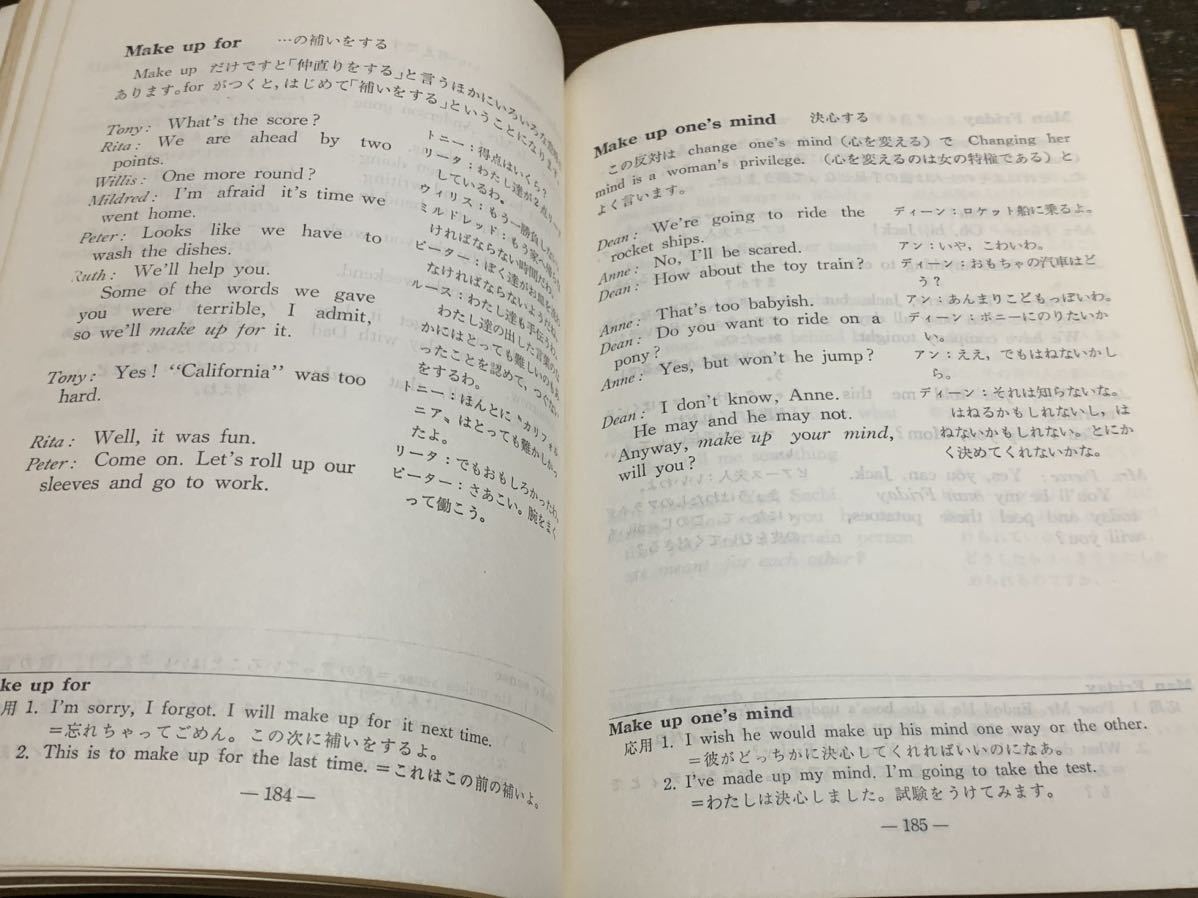 Make up for …の補いをする
Make up だけですと「仲直りをする」と言うほかにいろいろな意味が
あります。for がつくと, はじめて「補いをする」ということになります
Tony: What's the score?
Rita: We are ahead by two
points.
Willis: One more round?
Mildred: I'm afraid it's time we
went home.
Peter: Looks like we have to
wash the dishes.
Ruth: We'll help you.
Some of the words we gave
you were terrible, I admit,
so we'll make up for it.
Tony: Yes! "California" was too
hard.
Rita: Well, it was fun.
Peter: Come on. Let's roll up our
sleeves and go to work.
トニー：得点はいくら？
リータ：わたし達が2点リード
しているわ。
ウィリス：もう一勝負しない
ミルドレッド：もう家へ帰らな
ければならない時間だわ。
ピーター：ぼく達がお皿を洗わ
なければならないようだね。
ルース：わたし達も手伝うわ。
わたし達の出した言葉のな
かにはとっても難しいのもあ
ったことを認めて, つぐない
をするわ。
トニー：ほんとに〝カリフォル
ニア〟はとっても難かしかっ
たよ。
リータ：でもおもしろかったわ。
ピーター：さあこい。腕をまく
って働こう。
ke up for
用 1. I'm sorry, I forgot. I will make up for it next time.
＝忘れちゃってごめん。この次に補いをするよ。
2. This is to make up for the last time. ＝これはこの前の補いよ。
— 184 —
Make up one's mind 決心する
この反対は change one's mind (心を変える) で Changing her
mind is a woman's privilege. (心を変えるのは女の特権である) と
よく言います。
Dean: We're going to ride the
rocket ships.
Anne: No, I'll be scared.
Dean: How about the toy train?
Anne: That's too babyish.
Dean: Do you want to ride on a
pony?
Anne: Yes, but won't he jump?
Dean: I don't know, Anne.
He may and he may not.
Anyway, make up your mind,
will you?
ディーン：ロケット船に乗るよ。
アン：いや, こわいわ。
ディーン：おもちゃの汽車はど
う？
アン：あんまりこどもっぽいわ。
ディーン：ポニーにのりたいか
い。
アン：ええ, でもはねないかし
ら。
ディーン：それは知らないな。
はねるかもしれないし, は
ねないかもしれない。とにか
く決めてくれないかな。
Make up one's mind
応用 1. I wish he would make up his mind one way or the other.
＝彼がどっちかに決心してくれればいいのになあ。
2. I've made up my mind. I'm going to take the test.
＝わたしは決心しました。試験をうけてみます。
— 185 —